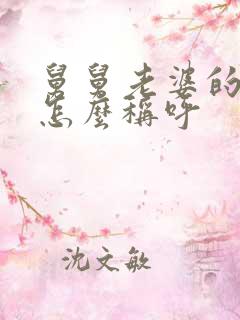 舅舅老婆的
怎麼稱呼
沈文敏